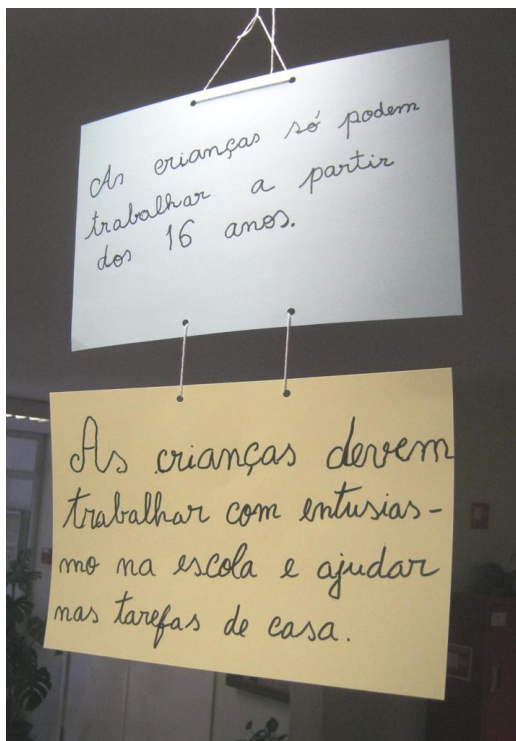 As crianças só podem
trabalhar a partir
dos 16 anos.
As crianças devem
trabalhar com entusias-
mo na escola e ajudar
nas tarefas de casa.